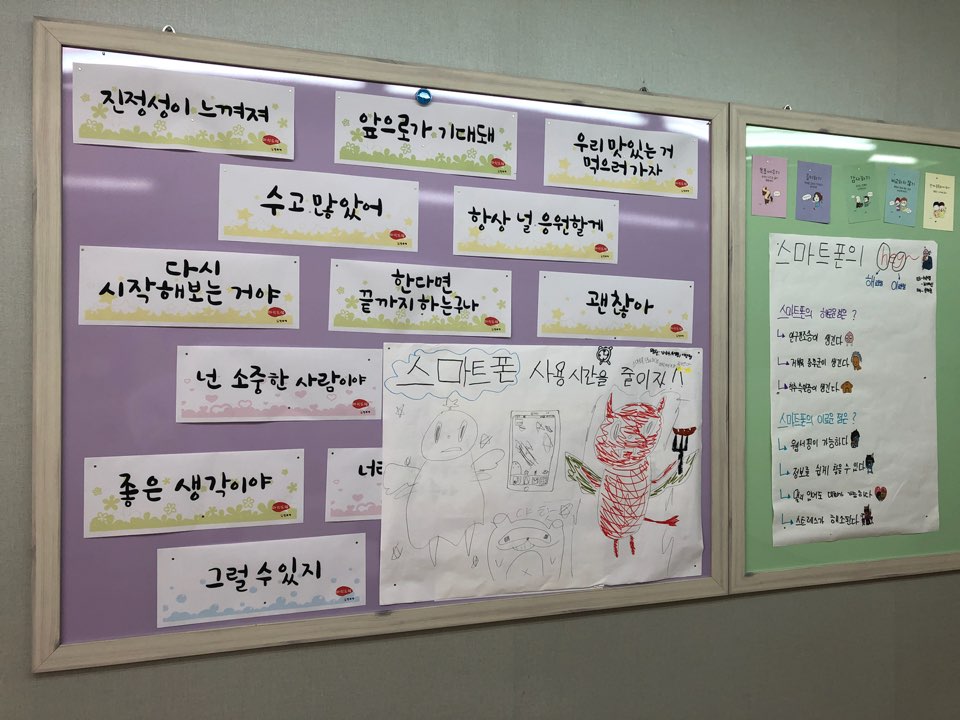 진정성이 느껴져
앞으로가 기대돼
우리 맛있는 거
먹으러 가자
수고 많았어
항상 널 응원할게
다시
시작해보는 거야
한다면
끝까지 하는구나
괜찮아
넌 소중한 사람이야
좋은 생각이야
그럴 수 있지
스마트폰 사용시간을 줄이자!
스마트폰의
해 이
스마트폰의 해로운 점은?
생긴다
생긴다
생긴다
스마트폰의 이로운 점은?
웹서핑이 가능하다
정보를 쉽게 찾을 수 있다
스트레스가 해소된다